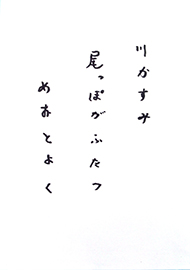 川かすみ
尾っぽがふたつ
めおとよく